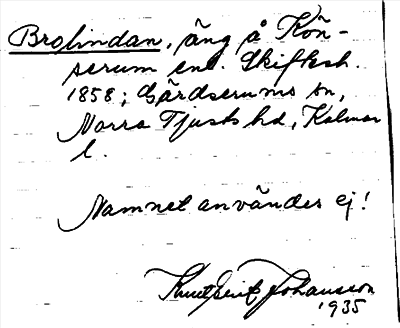 Brolindan, äng å Kön-
serum enl. Skifkesh.
1858; Gärdserums sn,
Norra Tjusts hd, Kalmar
l.
Namnet användes ej!
Johansson
1935